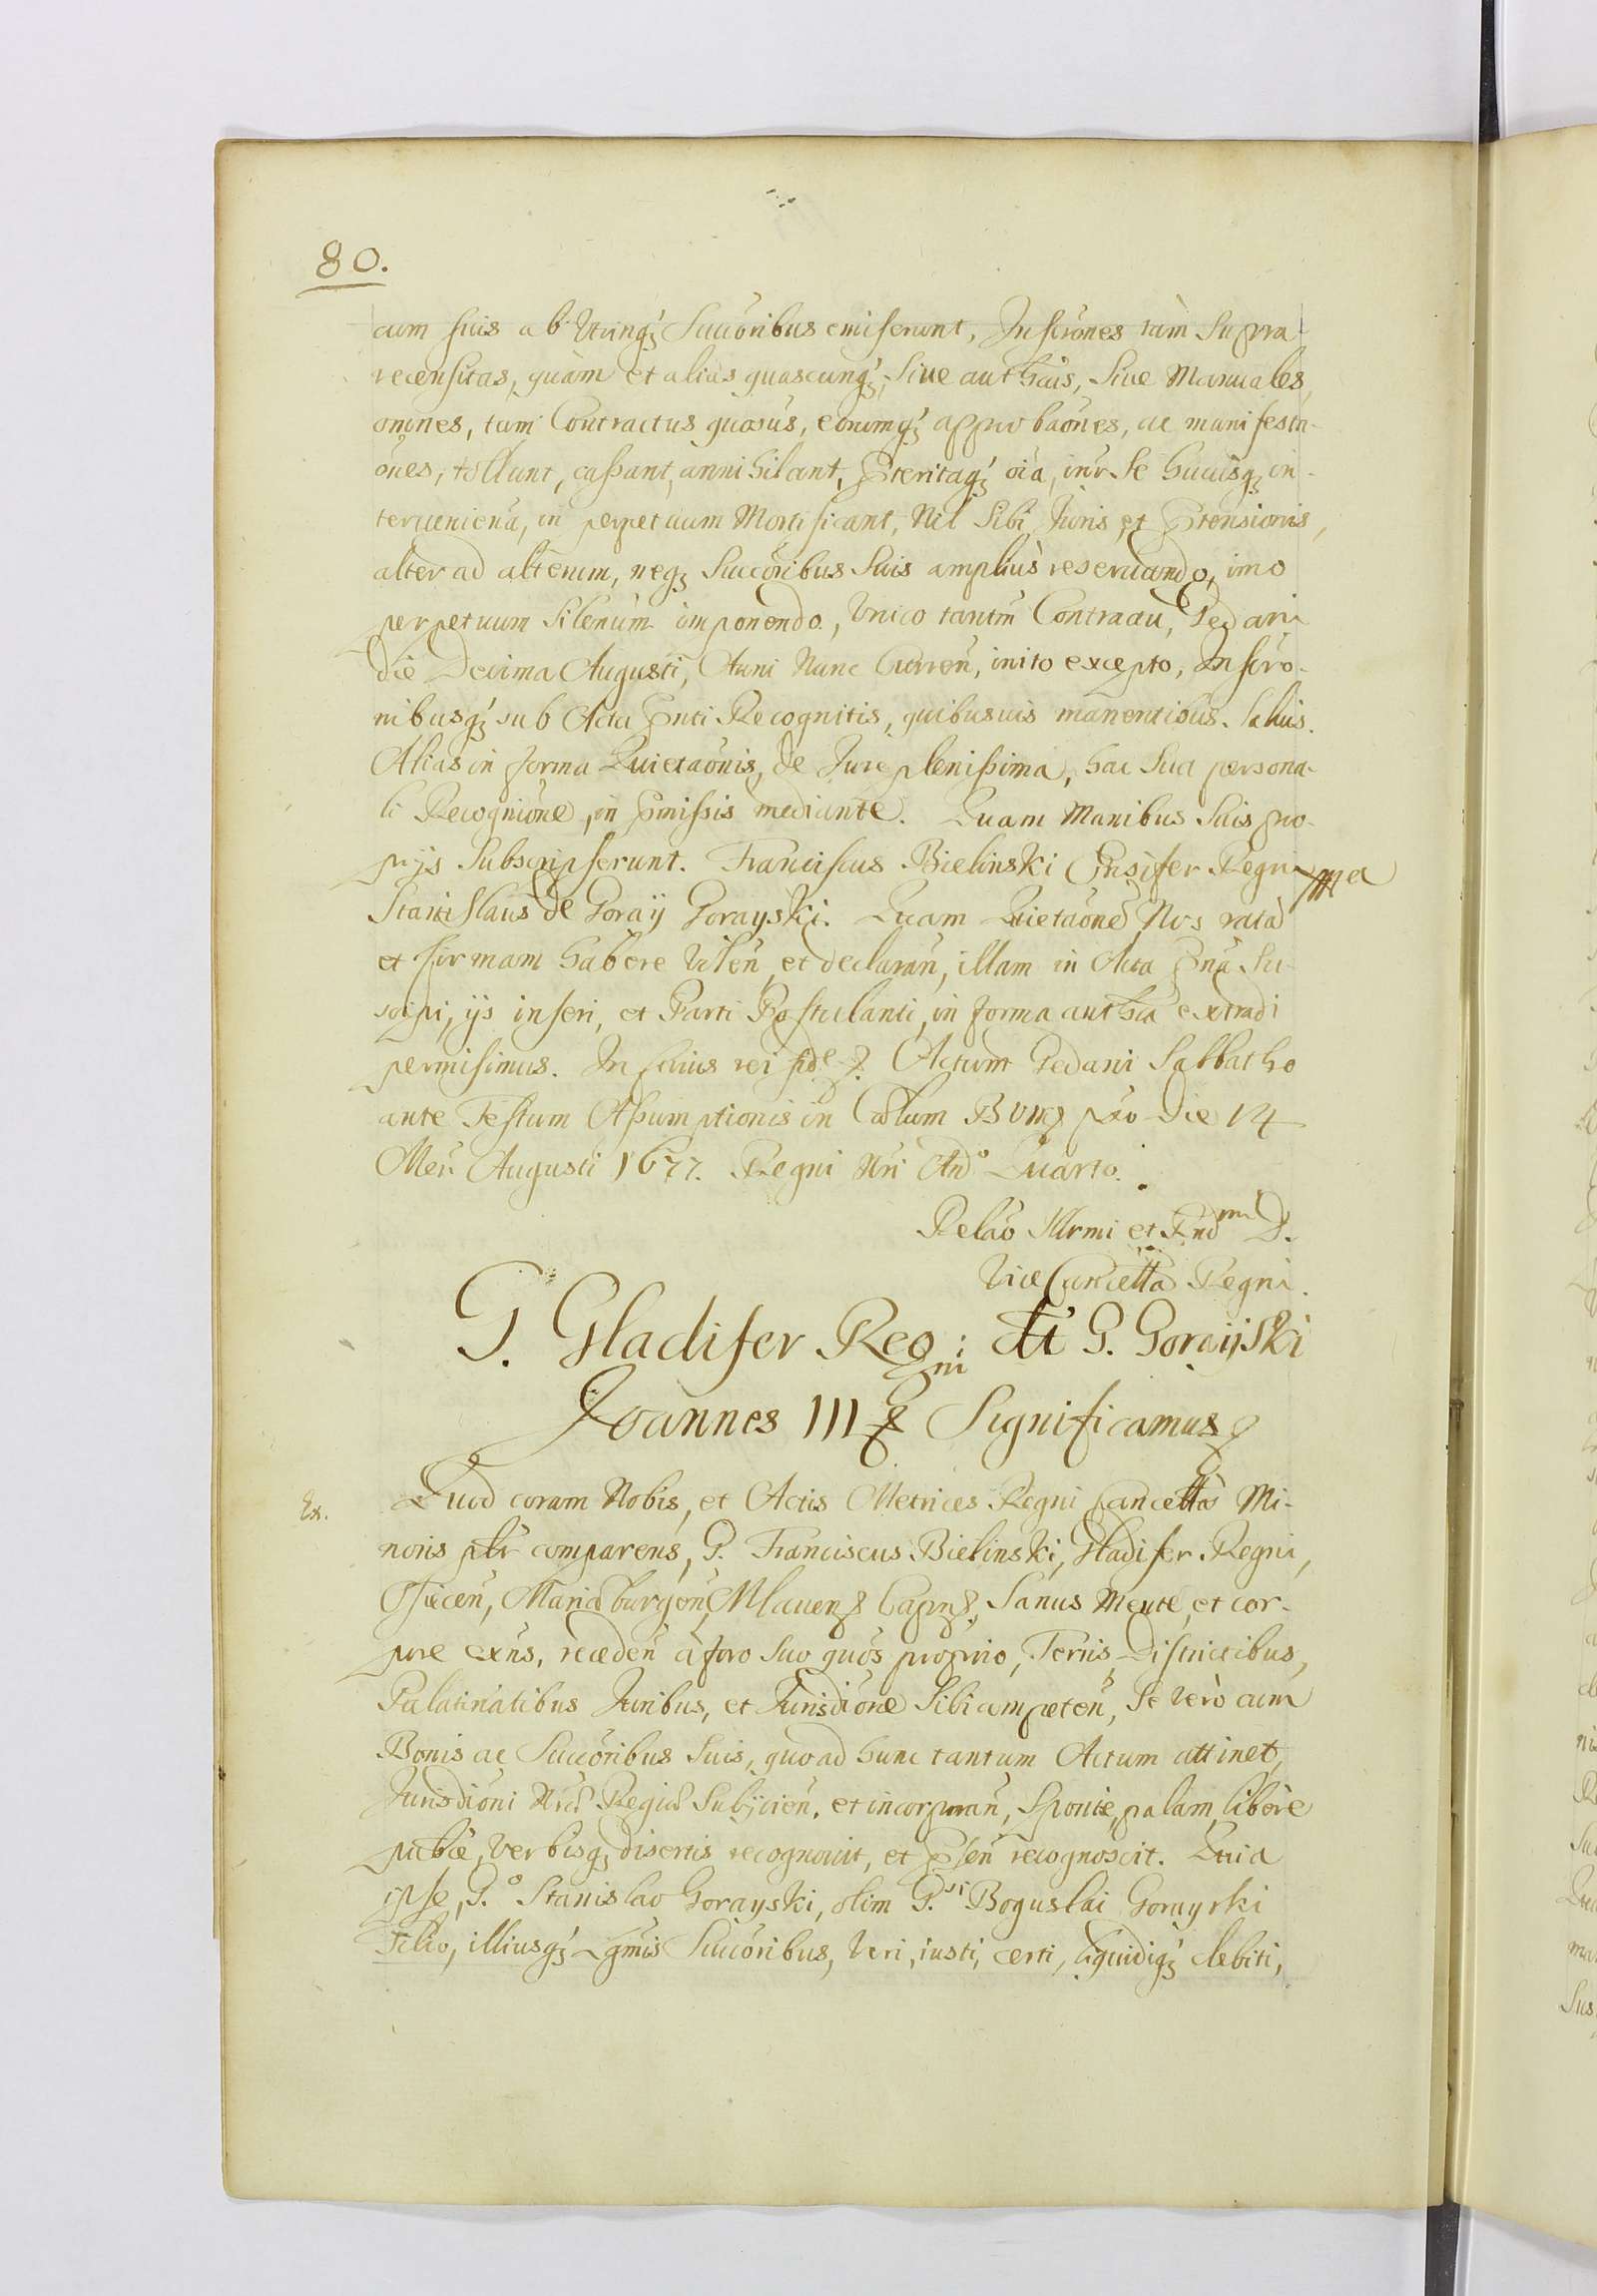 80.
cum suis ab Utrinq; Succoribus emiserunt, Inscrones tàm Supra
recensitas, quàm et alias quascunq;, Siue authcas, Siue Manuales
omnes, tam Contractus quosuis, eorumq; approbaones, ac manifesta-
ones, tollunt, cassant, annihilant, Pteritaq; oia, intr Se hucusq; in-
teruenieña, in perpetuum Mortificant, Nil Sibi Juris, et Ptensionis,
alter ad alterum, neq; Succoribus Suis ampliùs reseruando, imo
perpetuum Silenum imponendo, Unico tantm Contractu, Gedani
die Decima Augusti, Anni Nunc Curren, inito excepto, Inscro-
nibusq; sub Actu Pnti Recognitis, quibusuis manentibus Saluis.
Alias in forma Quietaonis, de Jure plenissima, hac Sua persona-
li Recognione, in Pmissis mediante. Quam Manibus Suis pro-
prijs Subscripserunt. Franciscus Bielinski Ensifer Regni mpa
Stanislaus de Goraij Gorayski. Quam Quietaone Nos rata
et firmam habere Volen, et declaran, illam in Acta Pna Su-
scipi, ijs inseri, et Parti Postulanti, in forma authca extradi
permisimus. In cuius rei fide &. Actum Gedani Sabbatho
ante Festum Assumptionis in Cælum BVM& pxo die 14
Men. Augusti 1677. Regni Nri And Quarto.
Relao Illrmi et Rnd mi D.
Vice Cancella Regni.
G. Gladifer Regni: et G. Goraijski
Joannes III & Significamus &
Ex. Quod coram Nobis, et Actis Metrices Regni Cancellæ Mi-
noris pltr comparens, G. Franciscus Bielinski, Gladifer Regni,
Osiecen, Mariæburgen, Mlauen& Capns&, Sanus Mente, et cor-
pore exns, receden à foro Suo quos proprio, Terris, Districtibus,
Palatinatibus Juribus, et Jurisdione Sibi competen, Se Verò cum
Bonis ac Succoribus Suis, quoad hunc tantum Actum attinet,
Jurisdioni Nræ Regiæ Subijcien, et incorporan, Sponte, palam, liberè
publice, Verbisq; disertis recognouit, et Psen recognoscit. Quia
ipse, G.o Stanislao Gorayski, olim G.si Boguslai Gorayski
Filio, illiusq; Lgmis Succoribus, Veri, iusti, certi, liquidiq; debiti,